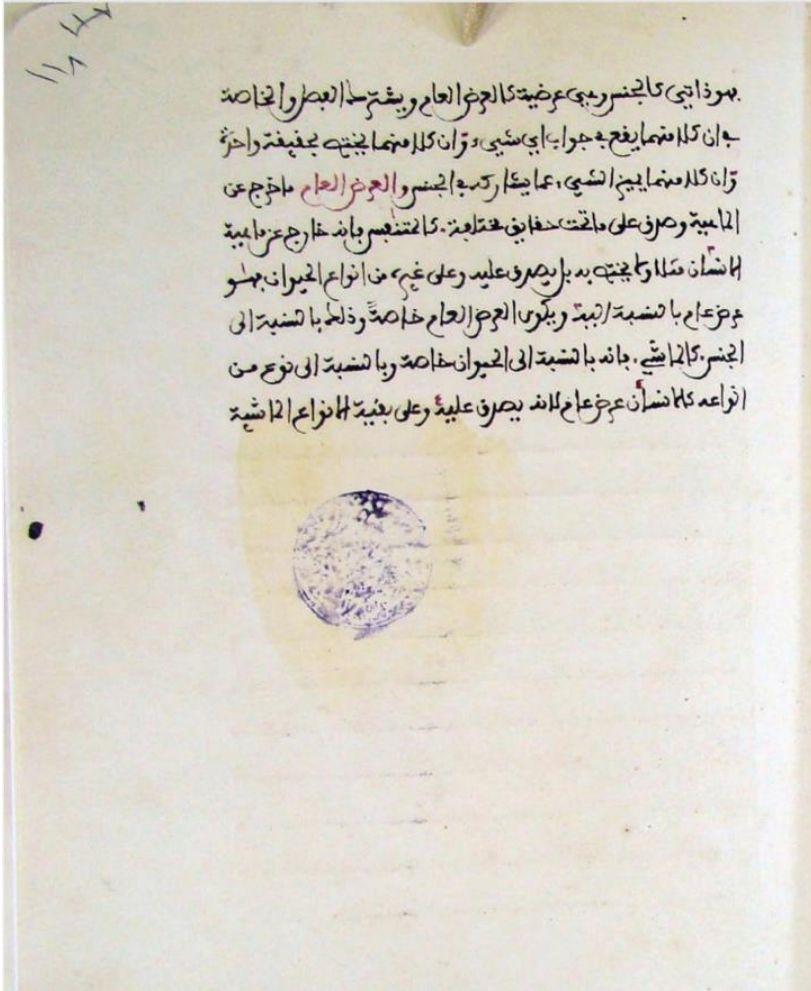 ١١٨
فهو ذاتي كالجنس وهي عرضية كالعرض العام ويشترك الفصل والخاصة
في ان كلا منهما يقع في جواب اي شيء وفي ان كلا منهما يختص بحقيقة واحدة
وفي ان كلا منهما يميز الشيء عما يشاركه في الجنس والعرض العام ما خرج عن
الماهية وصدق على ما تحت حقايق مختلفة كالمتنفس فانه خارج عن ماهية
الانسان مثلا ولا يختص به بل يصدق عليه وعلى غيره من انواع الحيوان فهو
عرض عام بالنسبة اليه ويكون العرض العام خاصةً وذلك بالنسبة الى
الجنس كالماشي فانه بالنسبة الى الحيوان خاصة وبالنسبة الى نوع من
انواعه كالانسان عرض عام لانه يصدق عليه وعلى بقية الانواع الماشية